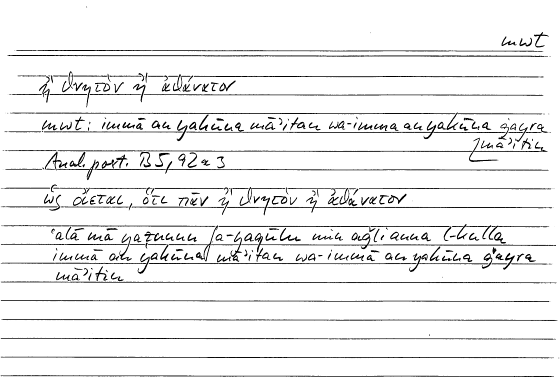 mwt
ἢ θνητὸν ἢ ἀθάνατον
mwt: immā an yakūna māʾitan wa-imma an yakūna ġayra
māʾitin
Anal. post. B5, 92a3
ὡς οἴεται, ὅτι πᾶν ἢ θνητὸν ἢ ἀθάνατον
ʿalā mā yaẓunnu fa-yaqūlu min aǧli anna l-kulla
immā an yakūna māʾitan wa-immā an yakūna ġayra
māʾitin